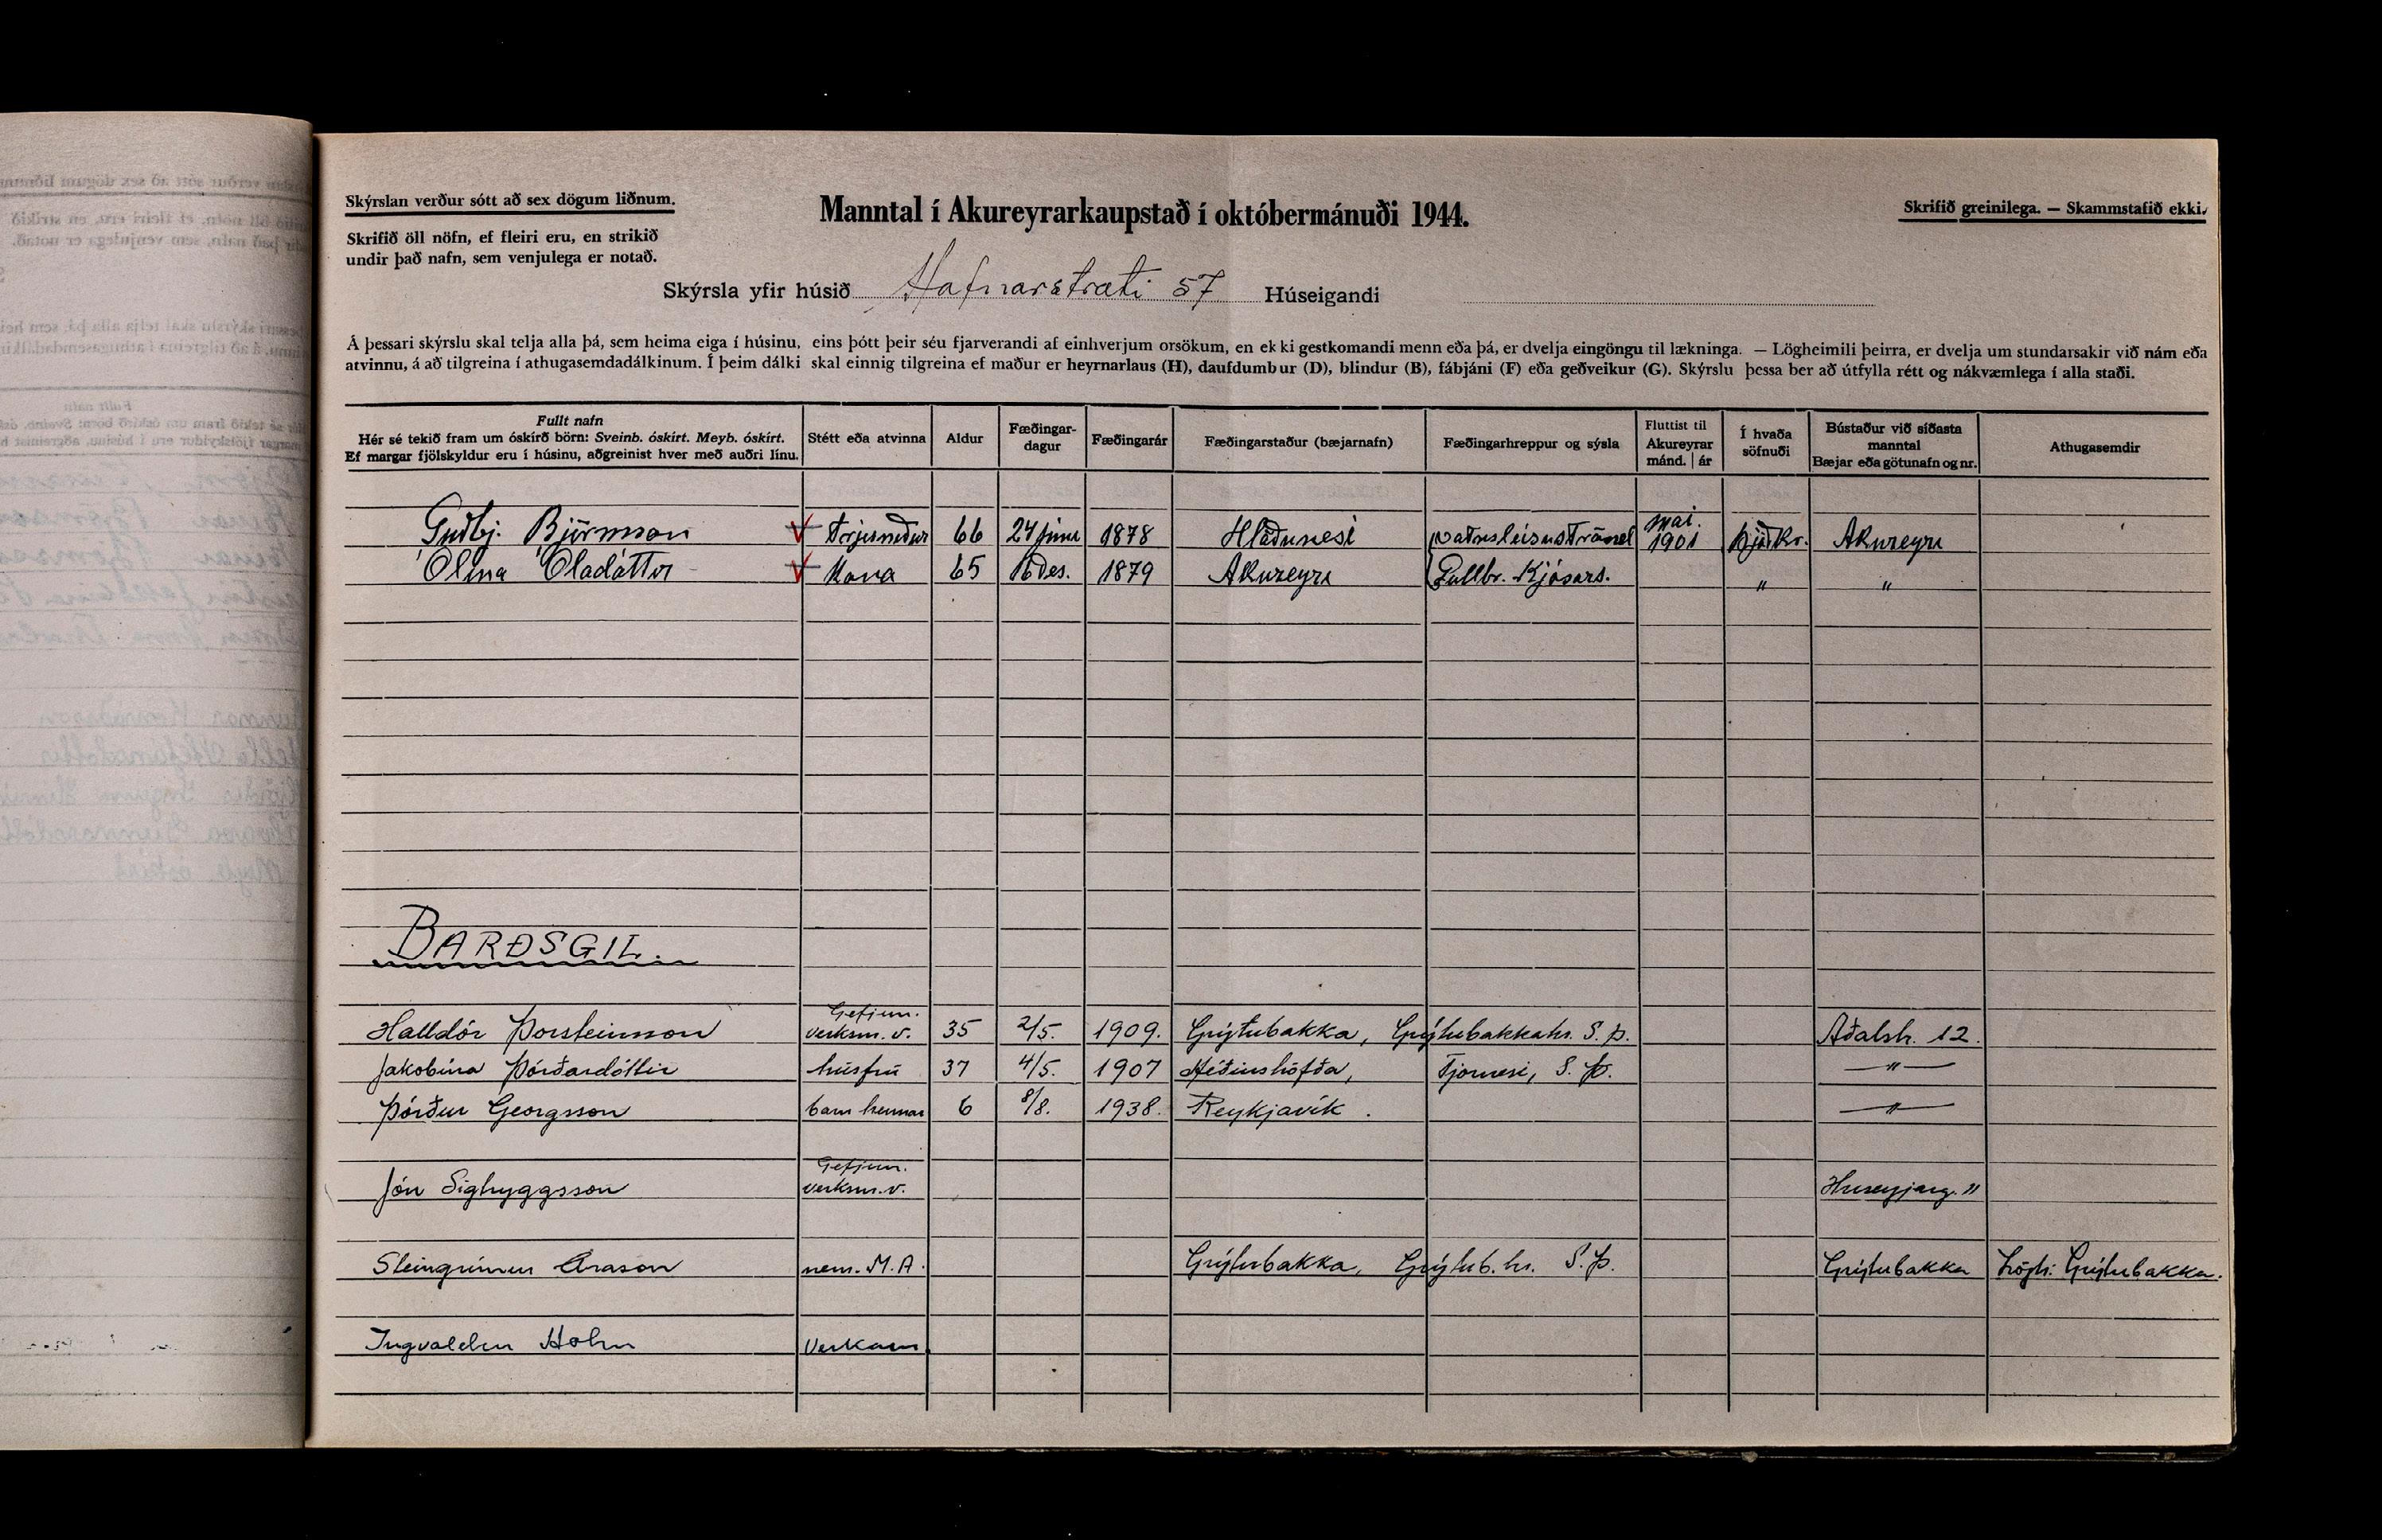 Skýrslan verður sótt að sex dögum liðnum.
Skrifið öll nöfn, ef fleiri eru, en strikið
undir það nafn, sem venjulega er notað.
Manntal í Akureyrarkaupstað í októbermánuði 1944.
Skrifið greinilega. — Skammstafið ekki.
Skýrsla yfir húsið Hafnarstræti 57 Húseigandi
Á þessari skýrslu skal telja alla þá, sem heima eiga í húsinu, eins þótt þeir séu fjarverandi af einhverjum orsökum, en ekki gestkomandi menn eða þá, er dvelja eingöngu til lækninga. — Lögheimili þeirra, er dvelja um stundarsakir við nám eða
atvinnu, á að tilgreina í athugasemdadálkinum. Í þeim dálki skal einnig tilgreina ef maður er heyrnarlaus (H), daufdumbur (D), blindur (B), fábjáni (F) eða geðveikur (G). Skýrslu þessa ber að útfylla rétt og nákvæmlega í alla staði.
Fullt nafn
Hér sé tekið fram um óskírð börn: Sveinb. óskírt. Meyb. óskírt.
Ef margar fjölskyldur eru í húsinu, aðgreinist hver með auðri línu.
Stétt eða atvinna
Aldur
Fæðingar-
dagur
Fæðingarár
Fæðingarstaður (bæjarnafn)
Fæðingarhreppur og sýsla
Fluttist til
Akureyrar
mánd. | ár
Í hvaða
söfnuði
Bústaður við síðasta
manntal
Bæjar eða götunafn og nr.
Athugasemdir
mai.
Guðbj. Björnsson 66 24 júni 1878 Hlöðunesi Vatnsleisuströnd 1901 þjóðkr. Akureyri
Ólína Óladóttir Kona 65 16 des. 1879 Akureyri Gullbr. Kjósars. " "
BARÐSGIL.
Gefjun.
Halldór Þorsteinsson verksm.v. 35 2/5. 1909. Grýtubakka, Grýtubakkahr. S. Þ. Aðalstr. 12.
Jakobína Þórðardóttir húsfrú 37 4/5. 1907 Héðinshöfða, Tjörnesi, S. Þ. —"—
Þórður Georgsson barn hennar 6 8/8. 1938. Reykjavík. —"—
Gefjun.
Jón Sigtryggsson verksm.v.
Steingrímur Arason nem. M.A. Grýtubakka, Grýtub.hr. S. Þ. Grýtubakka Lögh. Grýtubakka.
Holm Verkam.